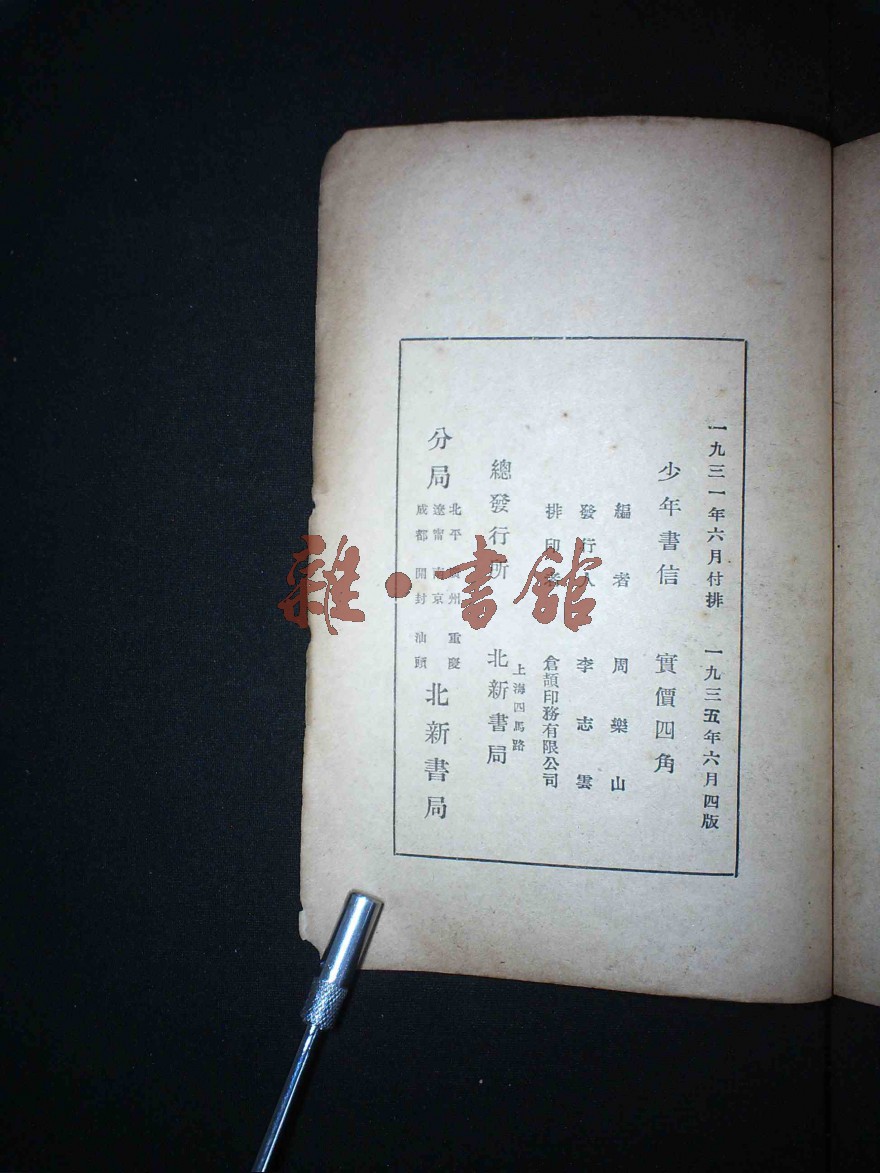 一九三一年六月付排 一九三五年六月四版
少年書信 實價四角
編者 周樂山
發行人 李志雲
排印者 倉頡印務有限公司
上海四馬路
總發行所 北新書局
分局
北平 廣州 重慶
遼甯 南京
成都 開封 汕頭
北新書局
雜·書館